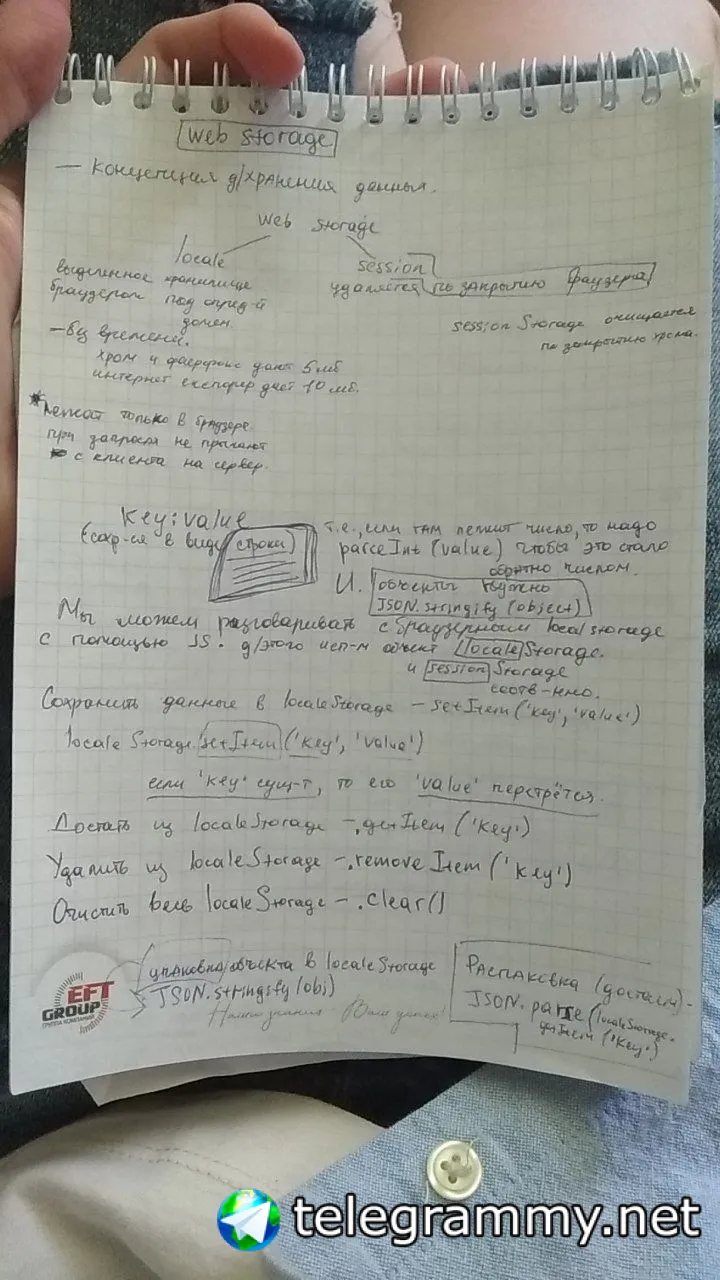 Web storage
— концепция д/хранения данных.
web storage
locale
session
выделенное хранилище
браузером под опред-й
домен.
удаляется по закрытию браузера
session Storage очищается
по закрытию хрома.
— без времени.
хром и фаерфокс дают 5 мб
интернет експлорер дает 10 мб.
* лежат только в браузере.
при запросах не прыгают
с клиента на сервер.
key:value
(сохр-ся в виде строки)
т.е., если там лежит число, то надо
parceInt (value) чтобы это стало
обратно числом.
И. объекты нужно
JSON.stringify (object)
Мы можем разговаривать с браузерным local storage
с помощью JS. д/этого исп-м объект locale Storage.
и session Storage
соотв-нно.
Сохранить данные в localeStorage — setItem ('key', 'value')
locale Storage.setItem ('key', 'value')
если 'key' сущ-т, то его 'value' перетрётся.
Достать из localeStorage —.getItem ('key')
Удалить из localeStorage —.remove Item ('key')
Очистить весь localeStorage — .clear()
упаковка объекта в localeStorage
JSON.stringify (obj)
Распаковка (достаем) -
JSON.parse (localeStorage.
getItem ('key')
EFT
GROUP
ГРУППА КОМПАНИЙ
Наши знания Ваш успех!
telegrammy.net